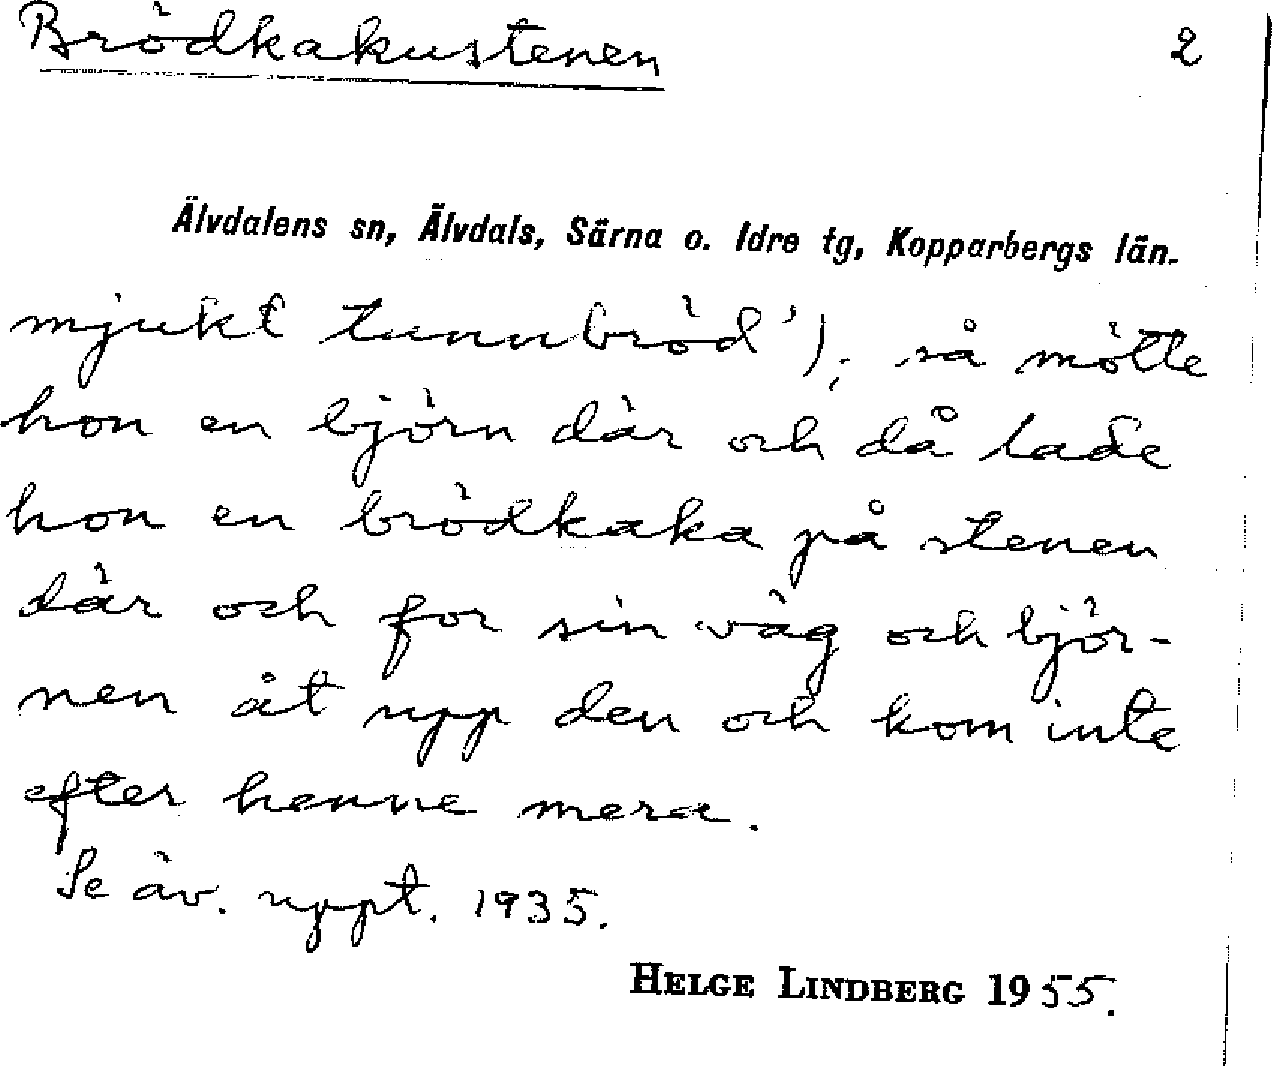 Brödkakustenen 2
Älvdalens sn, Älvdals, Särna o. Idre tg, Kopparbergs län.
mjukt tunnbröd'); så mötte
hon en björn där och då lade
hon en brödkaka på stenen
där och for sin väg och björ-
nen åt upp den och kom inte
efter henne mera.
Se äv. uppt. 1935.
HELGE LINDBERG 1955.